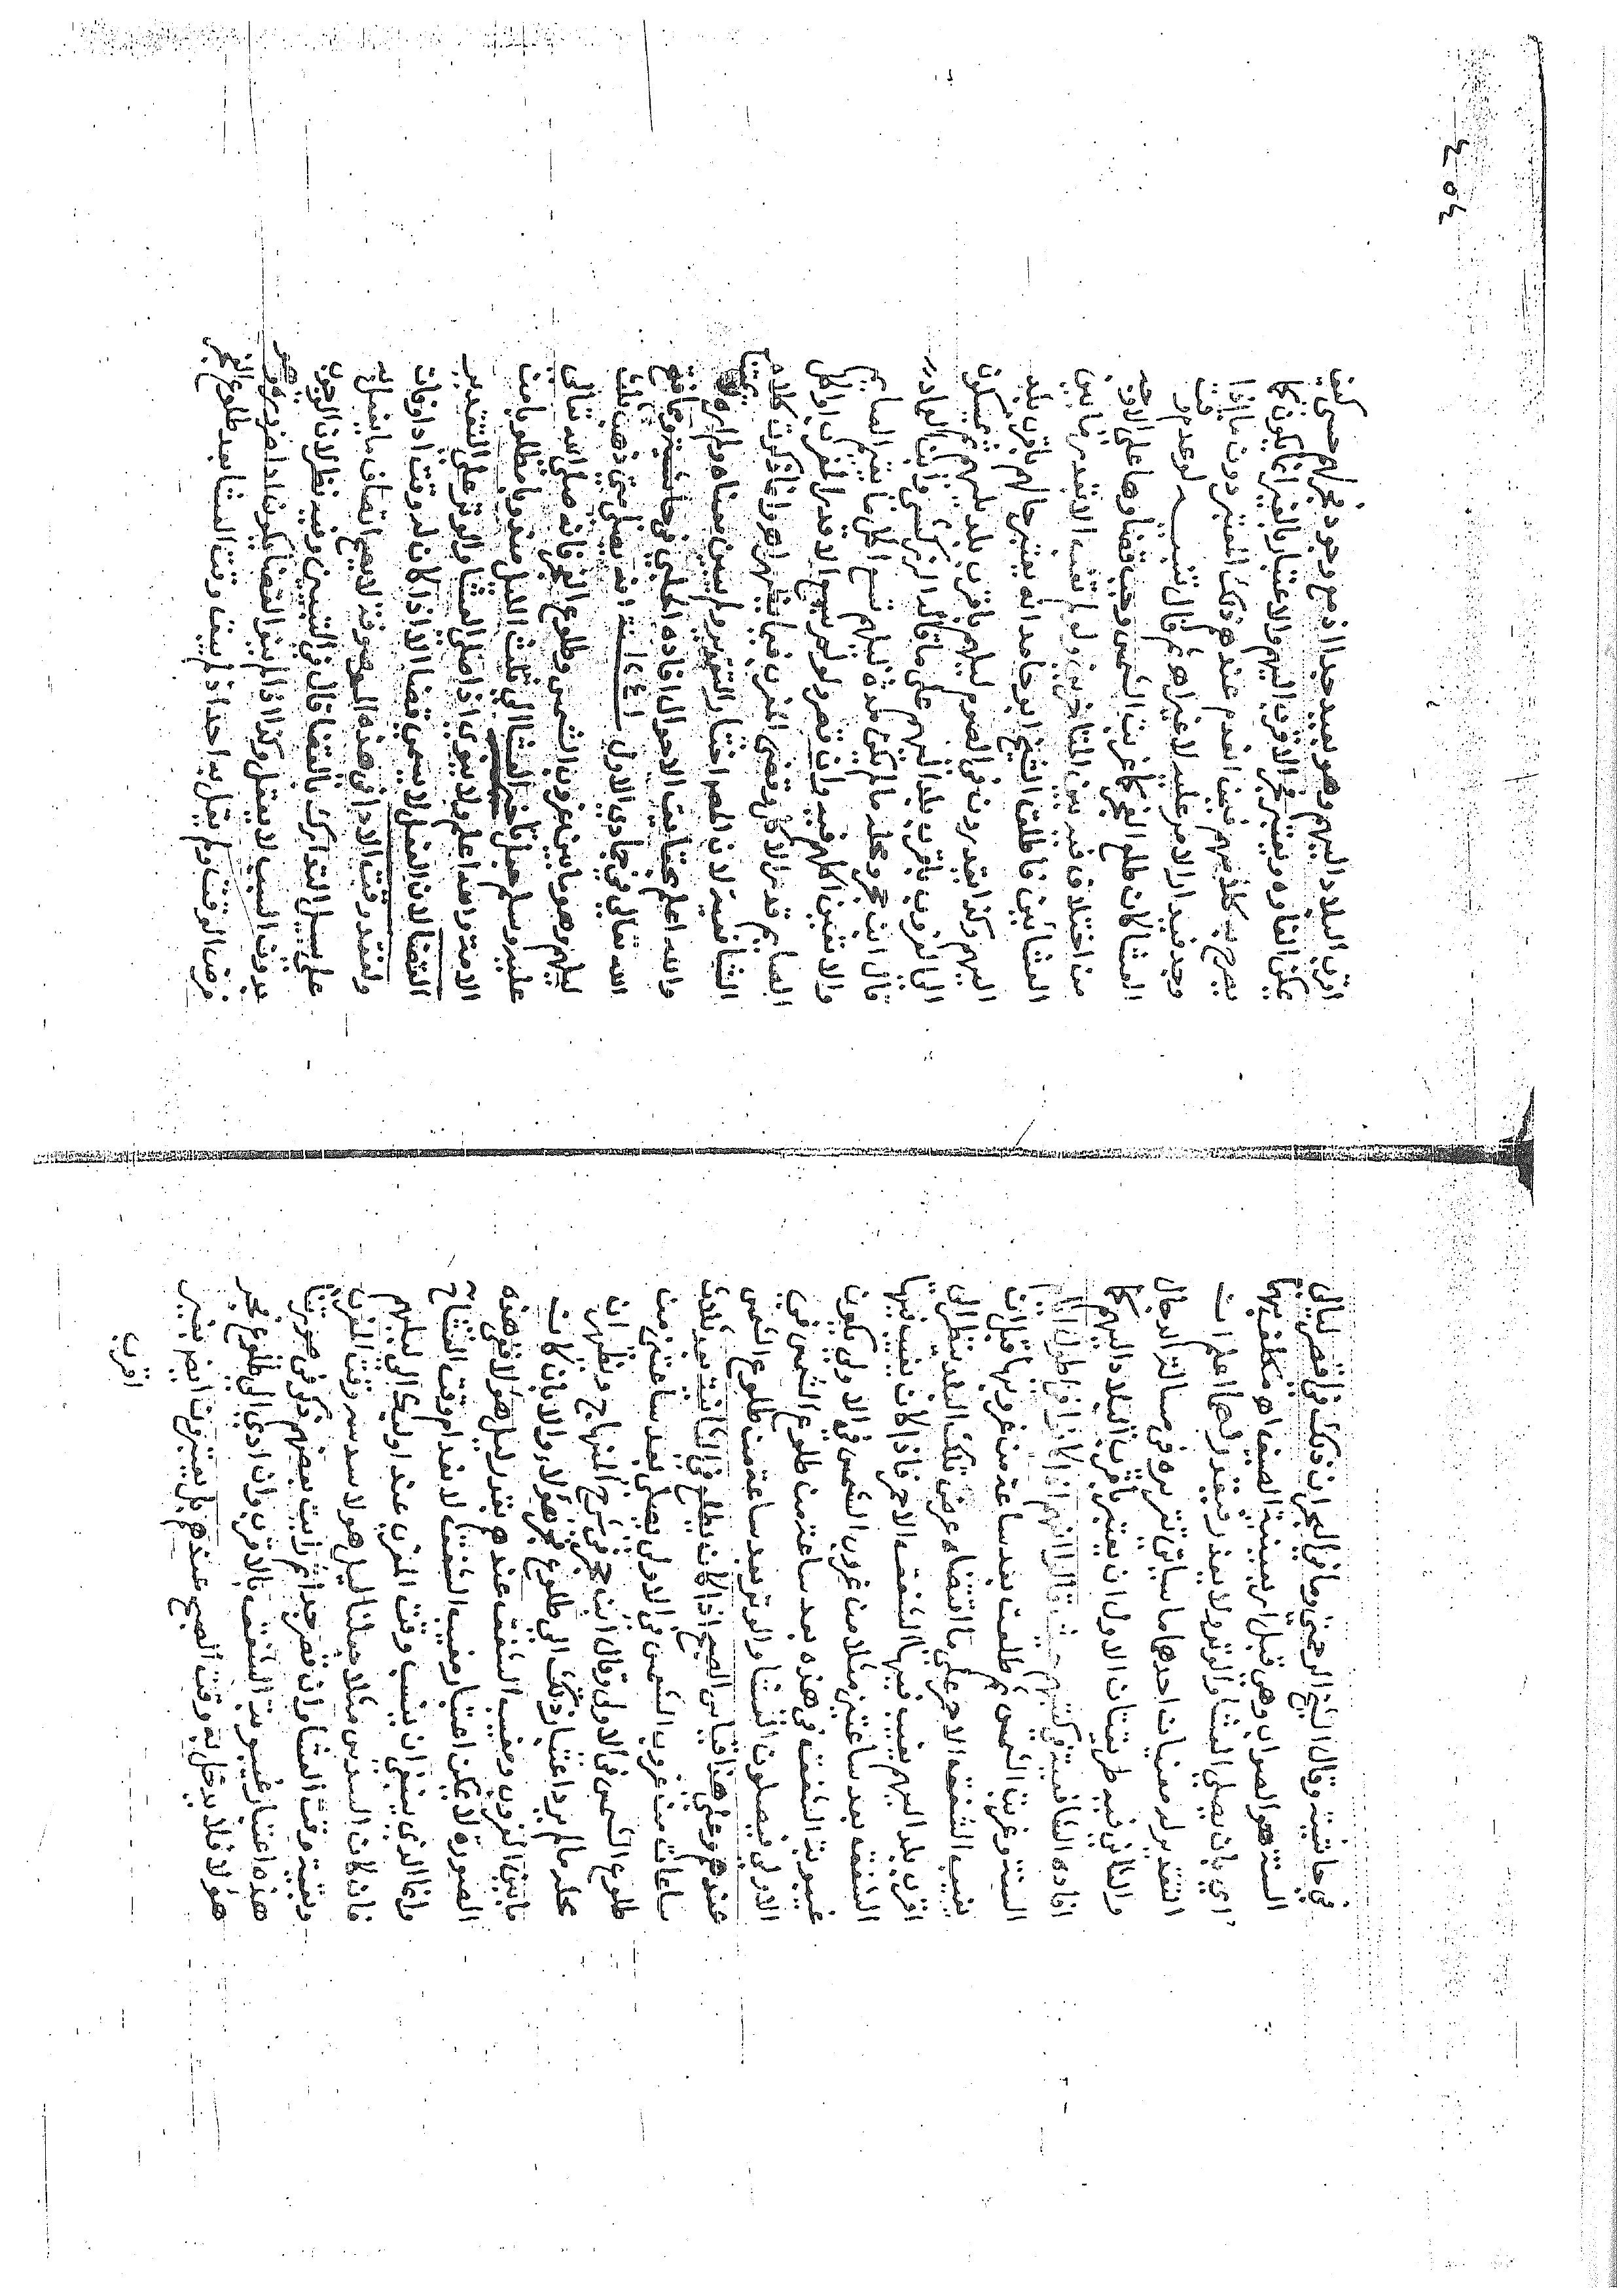 في حاشيته وقال الشيخ الرحمتي وما في البحران ذلك في اقصر ليالي
السنة هو الصواب وهي قبل اربعينية الصيف اه مكلف بهما
اي بان يصلي العشا والوتر ولا بعد فيقدر لهما اعلم ان
التقدير له معنيان احدهما سياتي تقريره في مسالة الدجال
والثاني فيه طريقتان الاولى ان يعتبر باقرب البلاد اليهم كما
افاده الشافعية في كتبهم حيث قالوا انهم اذا كانوا في اطول ايام
السنة وغربت الشمس ثم طلعت بعد ساعة من غروبها قبل ان
يغيب الشفق الاحمر على ما اقتضاه عرض تلك البلد ينظر الى
اقرب بلد اليهم يغيب فيها الشفق الاحمر فاذا كان يغيب فيها
الشفق بعد ساعتين مثلا من غروب الشمس في الاولى يكون
غيبوبة الشفق في هذه بعد ساعة من طلوع الشمس في
الاولى فيصلون العشا والوتر بعد ساعة من طلوع الشمس
عندهم وعلى هذا قياس الصبح اذا كان يطلع في الثانية بعد ثلاث
ساعات من غروب الشمس في الاولى يصلى بعد ساعتين من
طلوع الشمس في الاولى وقال ابن حجر في شرح المنهاج ويظهر ان
محله ما لم يرد اعتبار ذلك الى طلوع فجر هؤلاء والا بان كان
ما بين الغروب ومغيب الشفق عندهم بقدر ليل هؤلاء ففي هذه
الصورة لا يمكن اعتبار مغيب الشفق لانعدام وقت العشا ح
وانما الذي ينبغي ان ينسب وقت المغرب عند اولئك الى ليلهم
فان كان السدس مثلا جعلنا ليل هولا سدسه وقت المغرب
وبقيته وقت العشا وان قصر جدا ثم رايت بعضهم ذكر في صورتنا
هذه اعتبار غيبوبة الشفق بالاقرب وان ادى الى طلوع فجر
هولا فلا يدخل به وقت الصبح عندهم بل يعتبرون ايضا بفجر
اقرب
٣٥٣
اقرب البلاد اليهم وهو بعيد جدا اذ مع وجود فجر لهم حسي كيف
يمكن الغاؤه ويعتبر فجر الاقرب اليهم والاعتبار بالغير انما يكون كما
يصرح به كلامهم فيمن انعدم عندهم ذلك المعتبر دون ما اذا
وجد فيدار الامر عليه لا غير اه ثم قال تنبيه لو عدم وقت
العشا كان طلع الفجر كما غربت الشمس وجب قضاؤها على الاوجه
من اختلاف فيه بين المتاخرين ولو لم تغب الا بقدر ما بين
العشائين فاطلق الشيخ ابو حامد انه يعتبر حالهم باقرب بلد
اليهم وكذا يقدرون في الصوم ليلهم باقرب بلد يليهم ثم يمسكون
الى الغروب باقرب بلد اليهم على ما قاله الزركشي وابن العماد
قال ابن حجر ومحله ما لم يكن مدة ليلهم تسع اكل ما يقيم الصايم
والا تعين اكلهم فيه وان قصر ولو لم يسع الا قدر المغرب او اكل
الصايم قدم الاكل وقضى المغرب فيما يظهر اهر وانما ذكرت كلام
الشافعية لان المصر اختار التقدير ولم يبين معناه ولم اره لا
والله اعلم بحقايق الاحوال افاده الحلبي في حاشيته وجامع
الله تعالى في جمادي الاول اشكاله انه يصلى متى ذهب ثلث
ليلهم وهو ما بين غروب الشمس وطلوع الفجر فانه صلى الله تعالى
عليه وسلم جعل تاخير العشا الى ثلث الليل مندوبا مطلوبا من
الامة والله اعلم ولا ينوي اذا صلى العشا والوتر على التقدير
القضا لان الفعل لا يسمى قضا الا اذا كان له وقت ادا وفات
ولفقد وقت الادا في هذه الصورة لا يصح اتصاف ما يفعل به
على سبيل التدارك بالقضا قال في التبيين وفيه نظر لان الوجوب
بدون السبب لا يعقل وكذا اذا لم ينو القضا يكون ادا ضرورة وهو
فرض الوقت ولم يقل به احد اذ لم يبق وقت العشا بعد طلوع الفجر